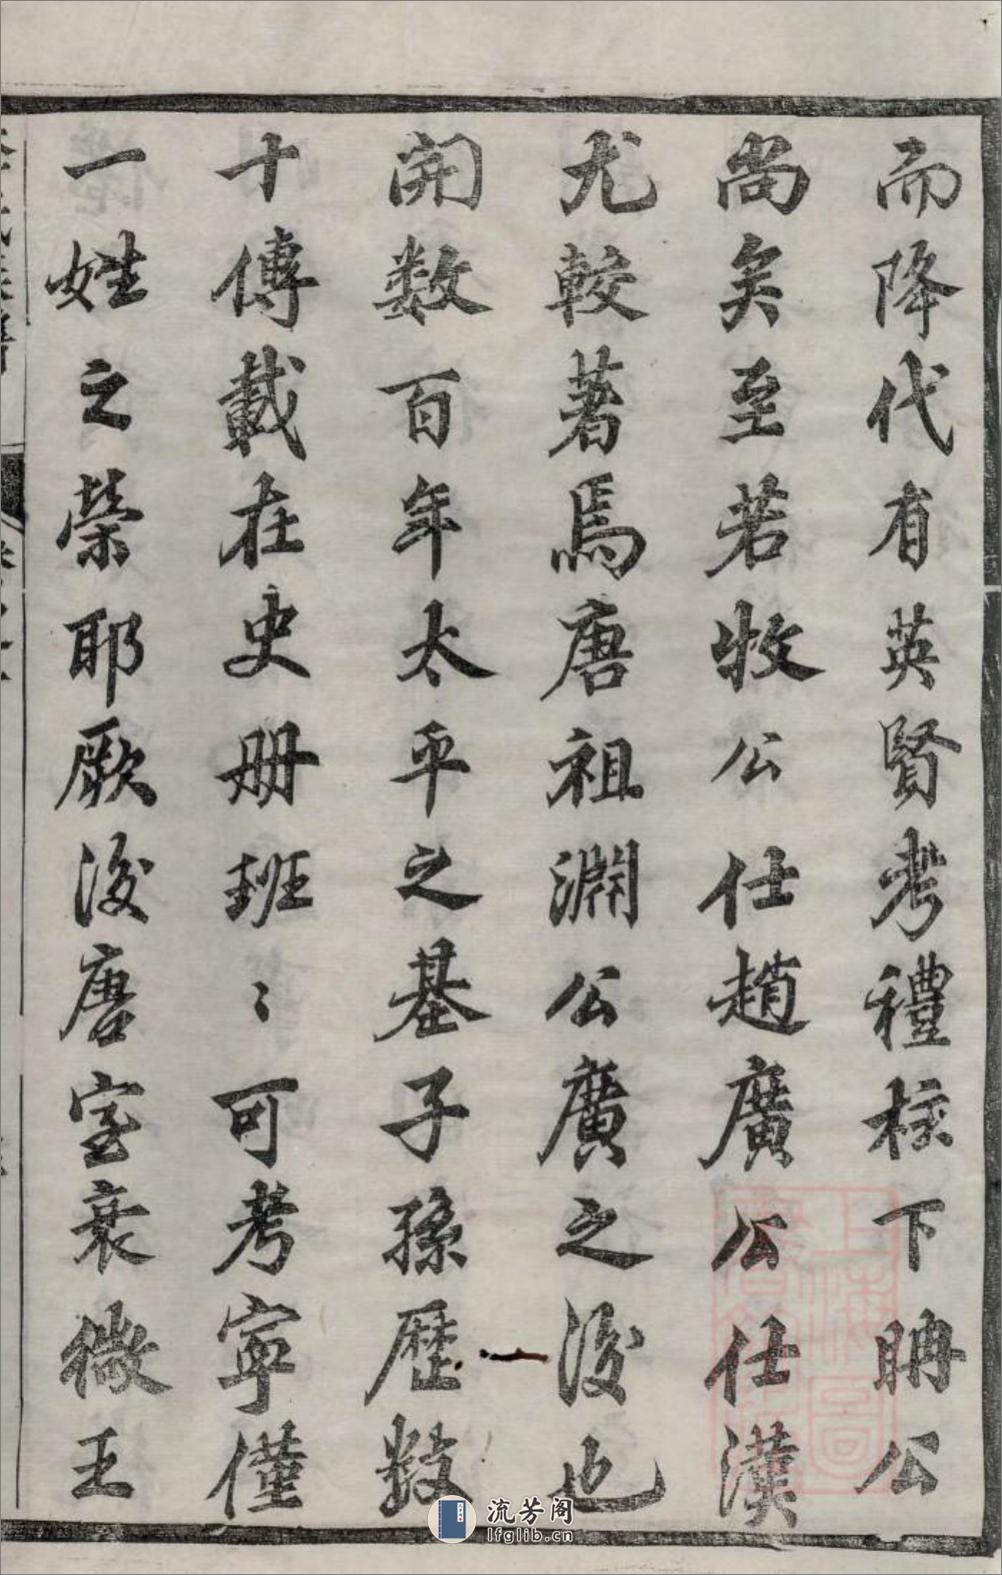 而降代有英賢考禮柱下聃公
尚矣至若牧公仕趙廣公仕漢
尤較著焉唐祖淵公廣之後也
開数百年太平之基子孫歷数
十傳載在史册班〻可考寧僅
一姓之榮耶厥後唐室衰微王
流芳阁
lfglib.cn